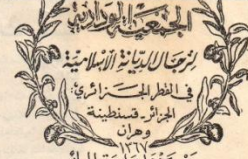 الجمعية الودادية
لرجال الديانة الاسلامية
في القطر الجزائري:
الجزائر - قسنطينة
وهران
١٣٦٧